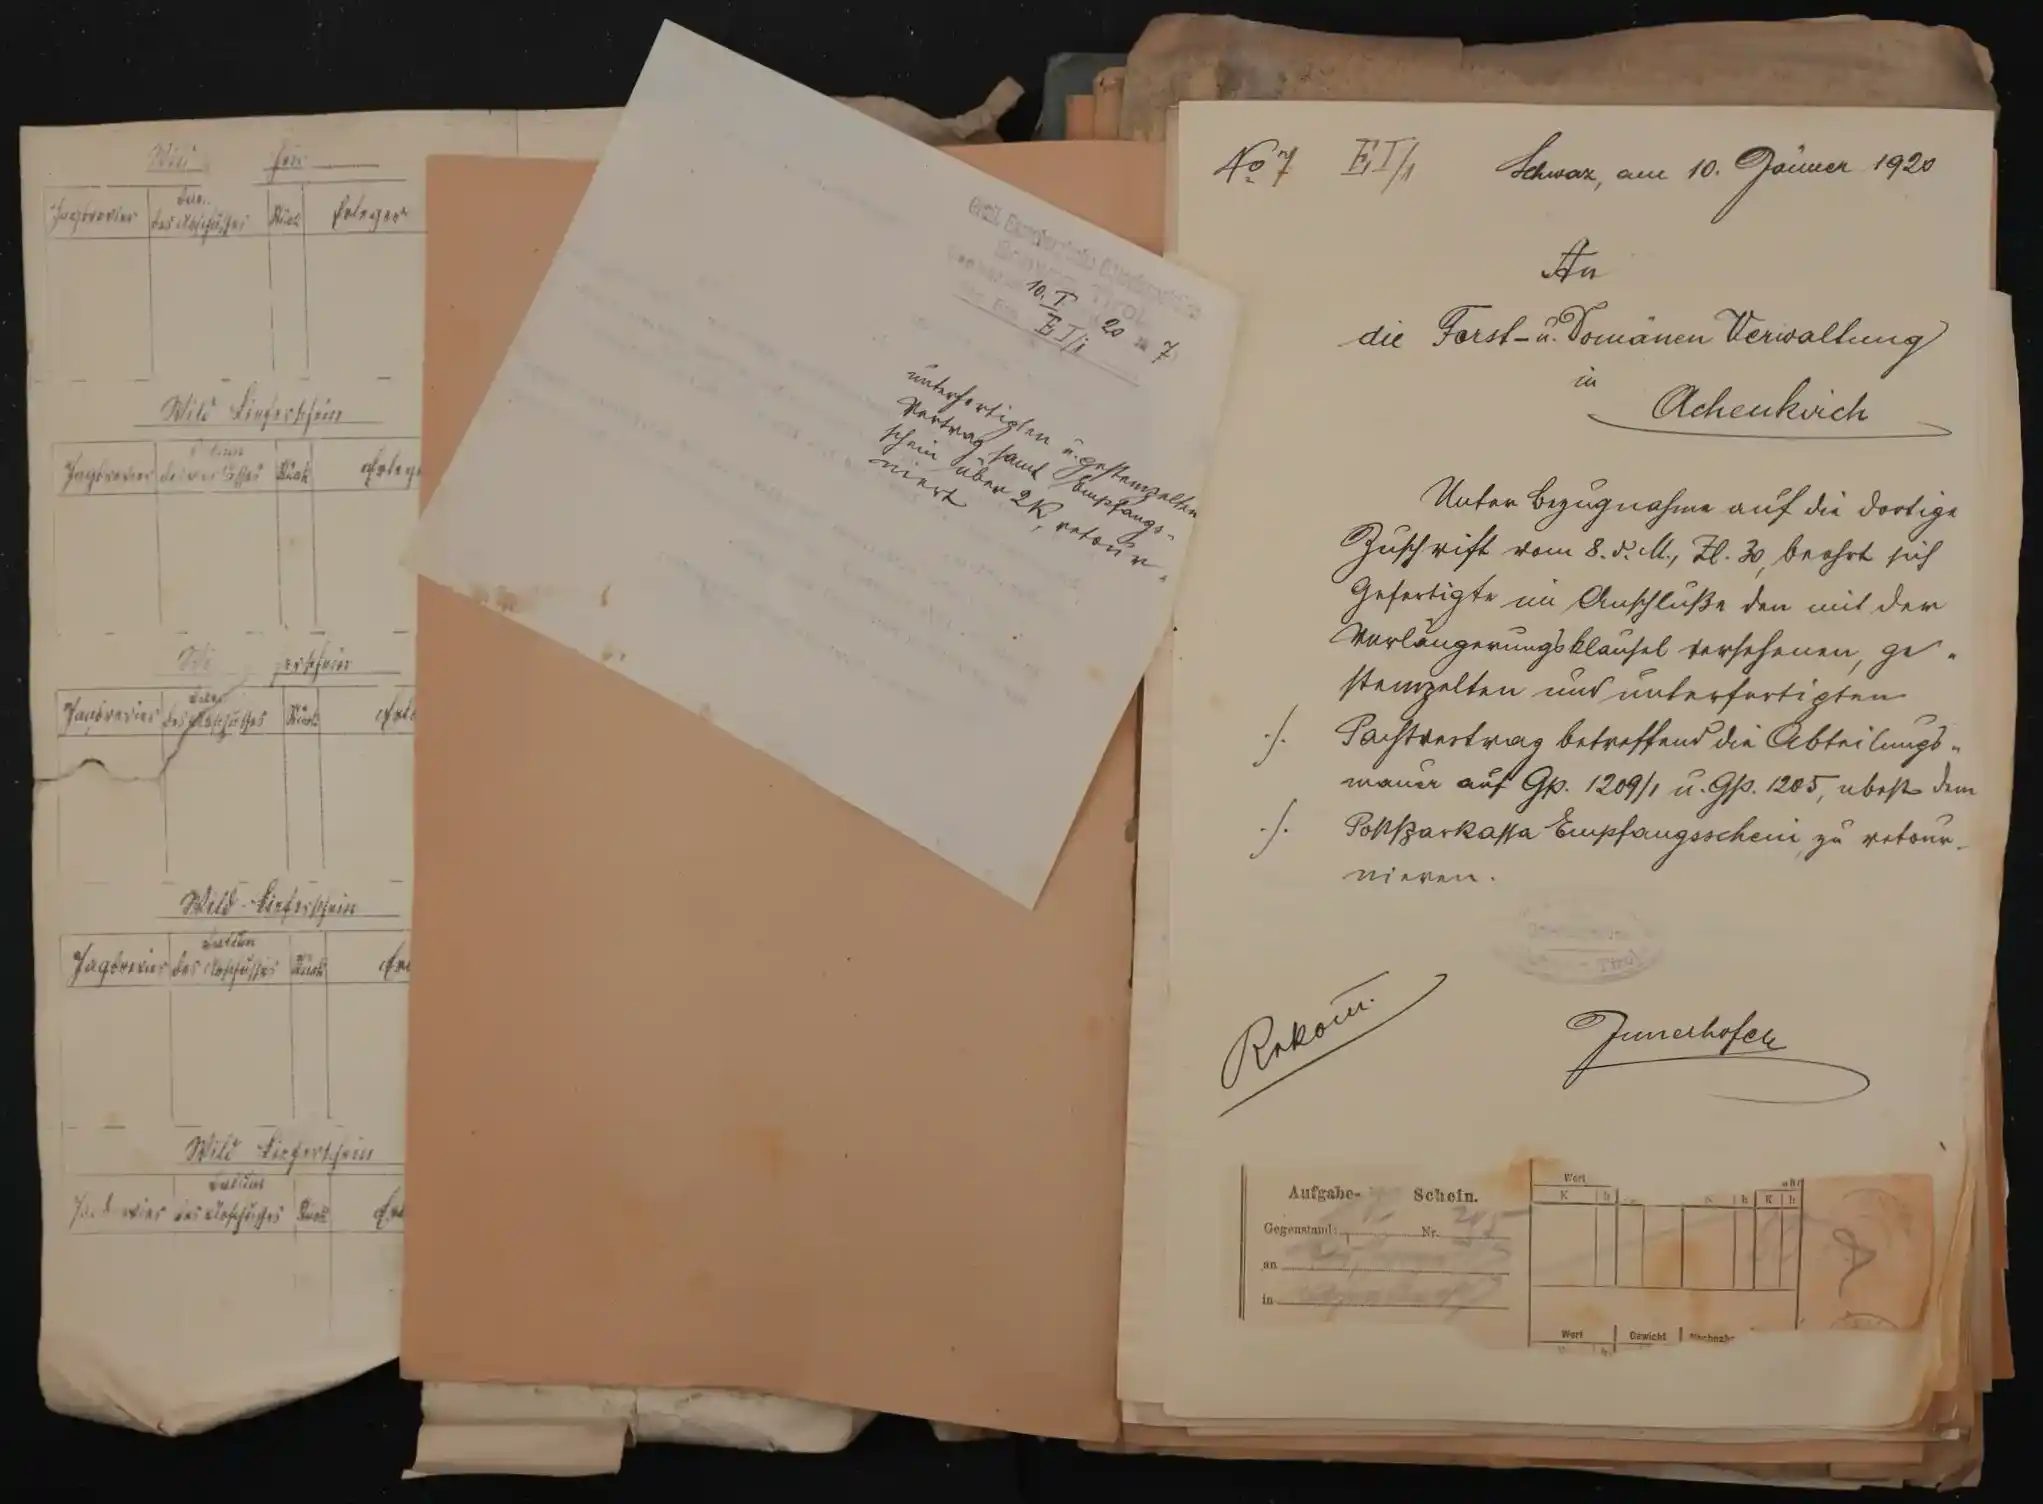 Wild
Jagdrevier des Abschußes Stück Erleger
Wild Lieferschein
Jagdrevier Datum des Abschußes Stück
Jagdrevier des Abschußes Stück
Wild-Lieferschein
Jagdrevier Datum des Abschußes Stück
Wild Lieferschein
Datum des Abschußes Stück
10. I. 20 7
E I/1
unterfertigten u. gestempelten
Vertrag samt Empfangs-
schein über 2 K, retour-
niert
No 7 E I/1 Schwaz, am 10. Jänner 1920
An
die Forst- u. Domänen Verwaltung
in
Achenkirch
Unter Bezugnahme auf die dortige
Zuschrift vom 8. d. M., Zl. 30, beehrt sich
Gefertigte im Anschluße den mit der
Verlängerungsklausel versehenen, ge-
stempelten und unterfertigten
./. Pachtvertrag betreffend die Abteilungs-
mauer auf Gp. 1209/1 u. Gp. 1205, nebst dem
./. Postsparkassa Empfangsschein, zu retour-
nieren.
Tirol
Rekom.
Innerhofer
Aufgabe- Schein.
Gegenstand: Nr. 205
an
in
Wert
K h K h K h
Wert Gewicht Nachnahme